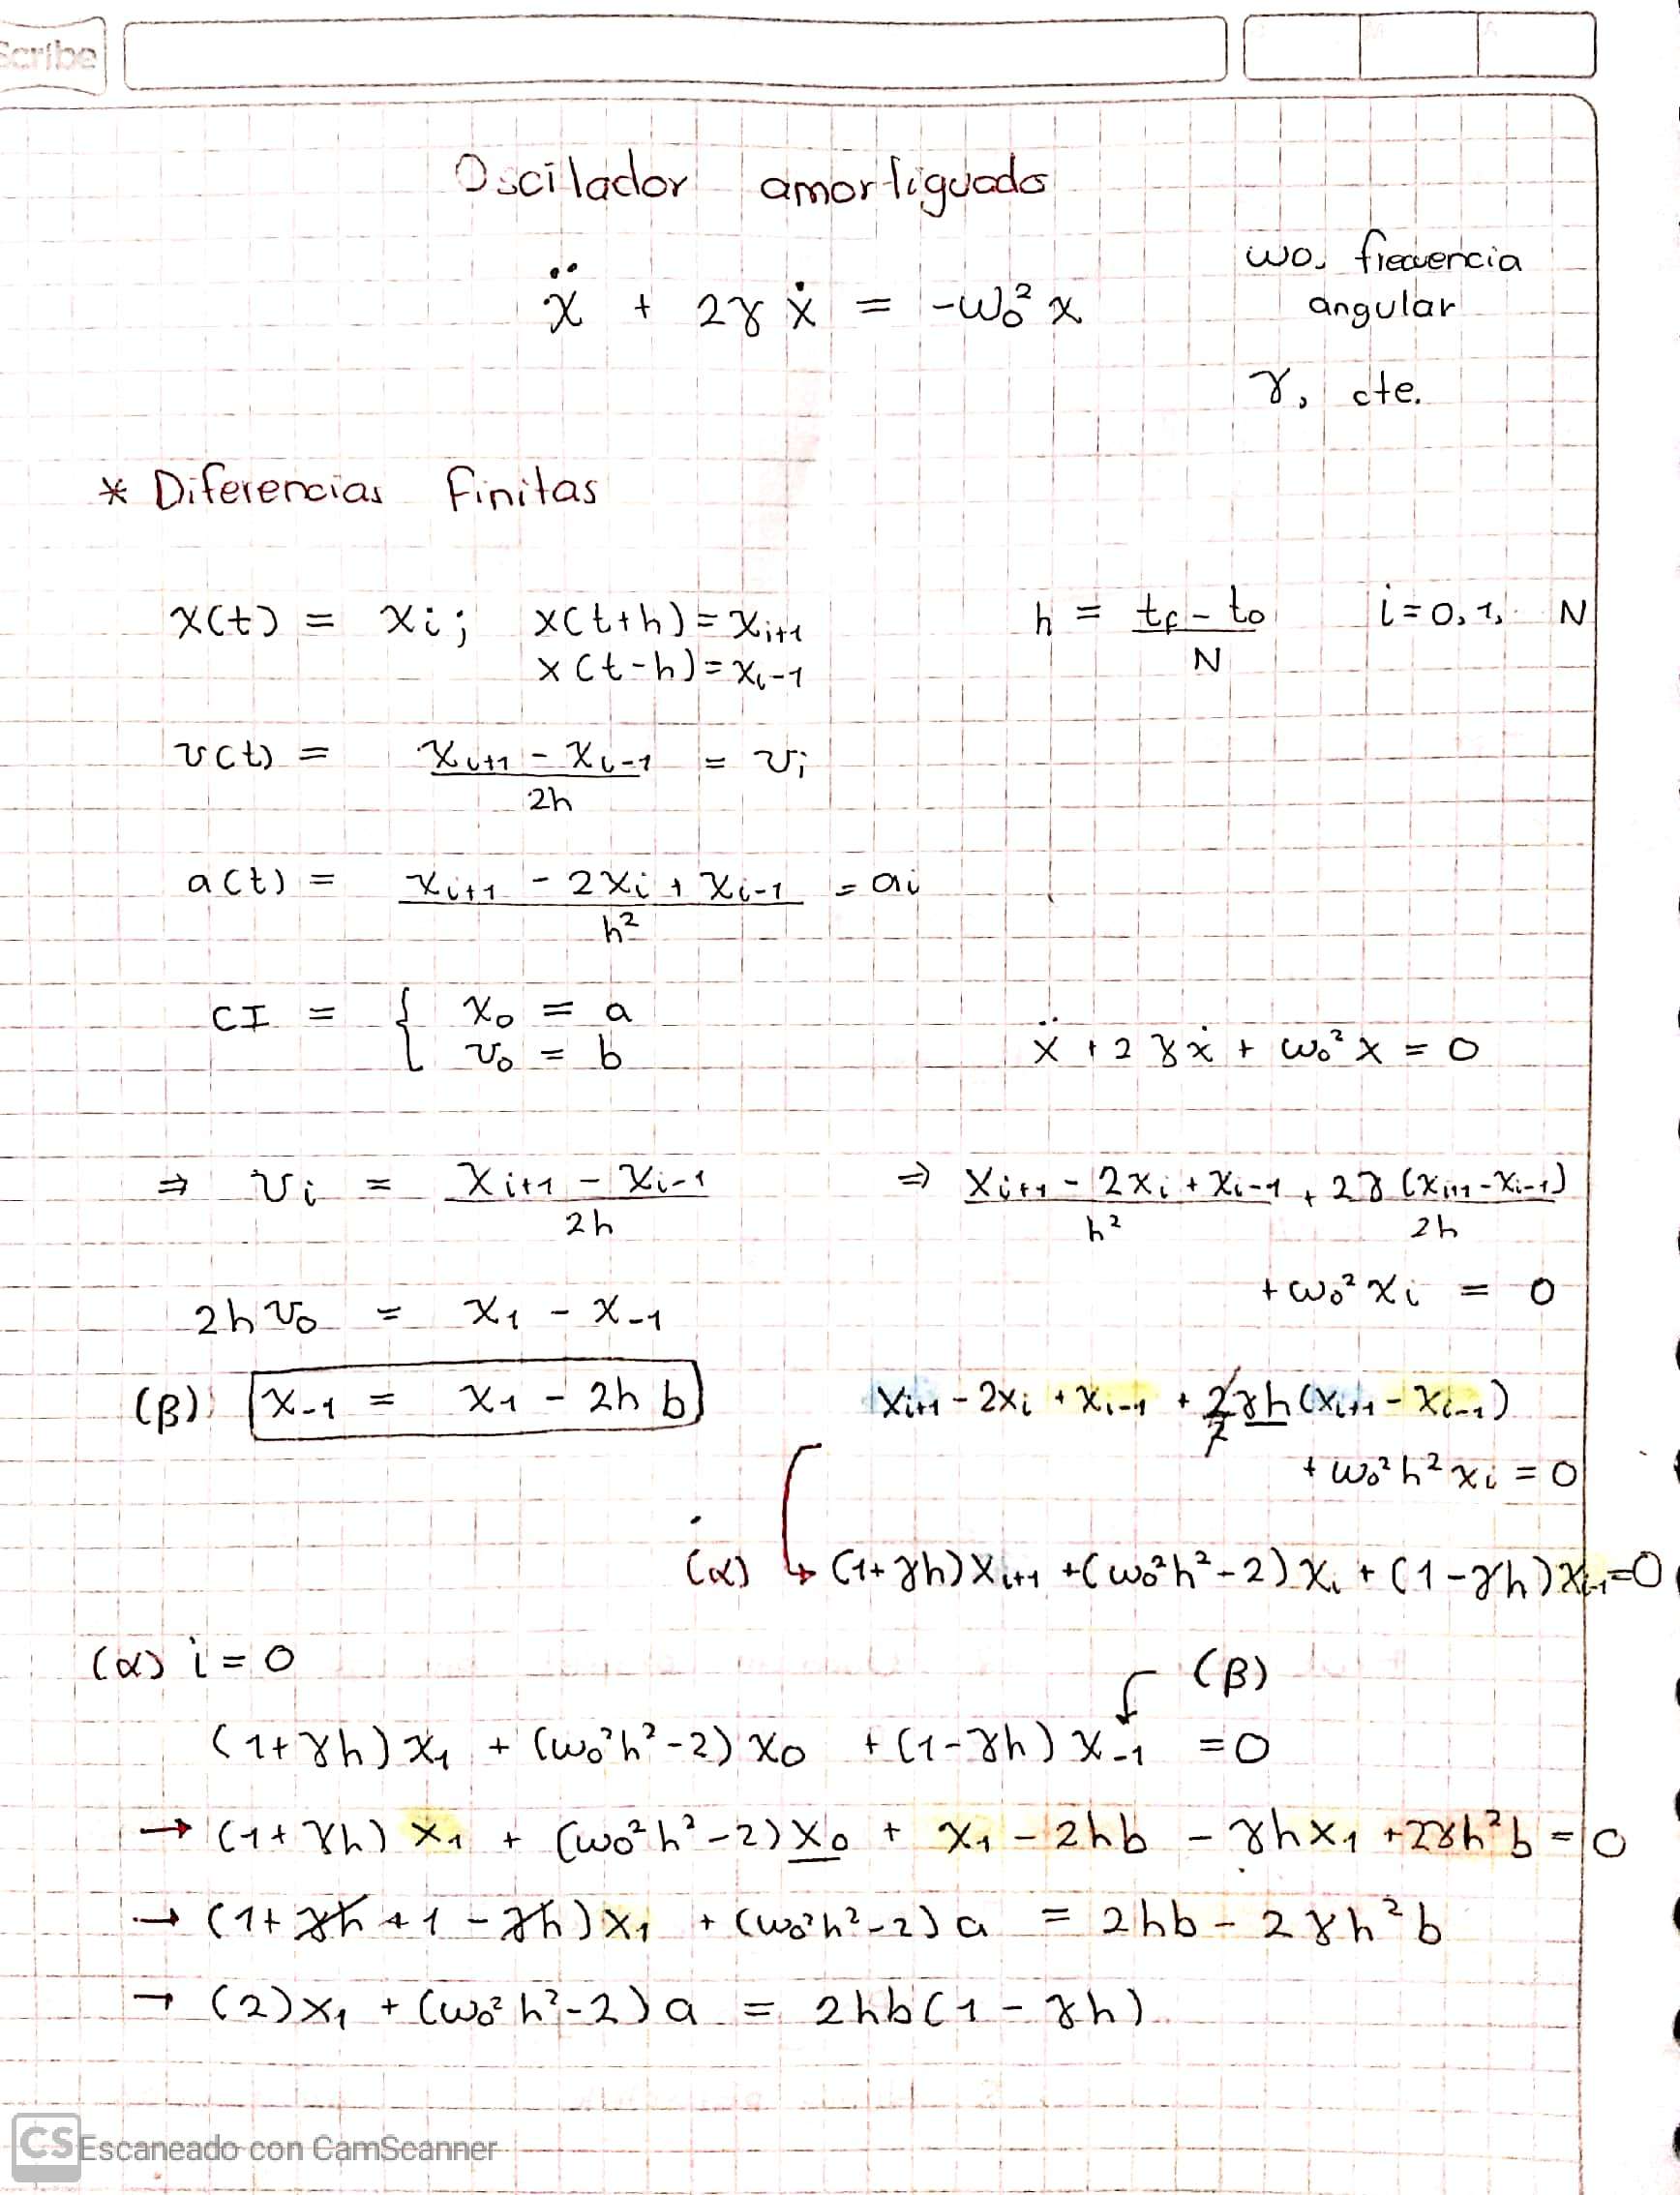 Scribe
Oscilador amortiguado
ẍ + 2γẋ = -ω₀²x
ω₀, frecuencia
angular
γ, cte.
* Diferencias finitas
x(t) = xᵢ; x(t+h) = xᵢ₊₁
x(t-h) = xᵢ₋₁
h = (t_f - t₀)/N i = 0, 1, N
v(t) = (xᵢ₊₁ - xᵢ₋₁)/2h = vᵢ
a(t) = (xᵢ₊₁ - 2xᵢ + xᵢ₋₁)/h² = aᵢ
CI = { x₀ = a
v₀ = b
ẍ + 2γẋ + ω₀²x = 0
⇒ vᵢ = (xᵢ₊₁ - xᵢ₋₁)/2h
2hv₀ = x₁ - x₋₁
(β) x₋₁ = x₁ - 2hb
⇒ (xᵢ₊₁ - 2xᵢ + xᵢ₋₁)/h² + 2γ(xᵢ₊₁ - xᵢ₋₁)/2h
+ ω₀²xᵢ = 0
xᵢ₊₁ - 2xᵢ + xᵢ₋₁ + (2/2)γh(xᵢ₊₁ - xᵢ₋₁)
+ ω₀²h²xᵢ = 0
(α) ↳ (1+γh)xᵢ₊₁ + (ω₀²h²-2)xᵢ + (1-γh)xᵢ₋₁ = 0
(α) i = 0
(β)
(1+γh)x₁ + (ω₀²h²-2)x₀ + (1-γh)x₋₁ = 0
→ (1+γh)x₁ + (ω₀²h²-2)x₀ + x₁ - 2hb - γhx₁ + 2γh²b = 0
→ (1+γh+1-γh)x₁ + (ω₀²h²-2)a = 2hb - 2γh²b
→ (2)x₁ + (ω₀²h²-2)a = 2hb(1-γh)
CS Escaneado con CamScanner